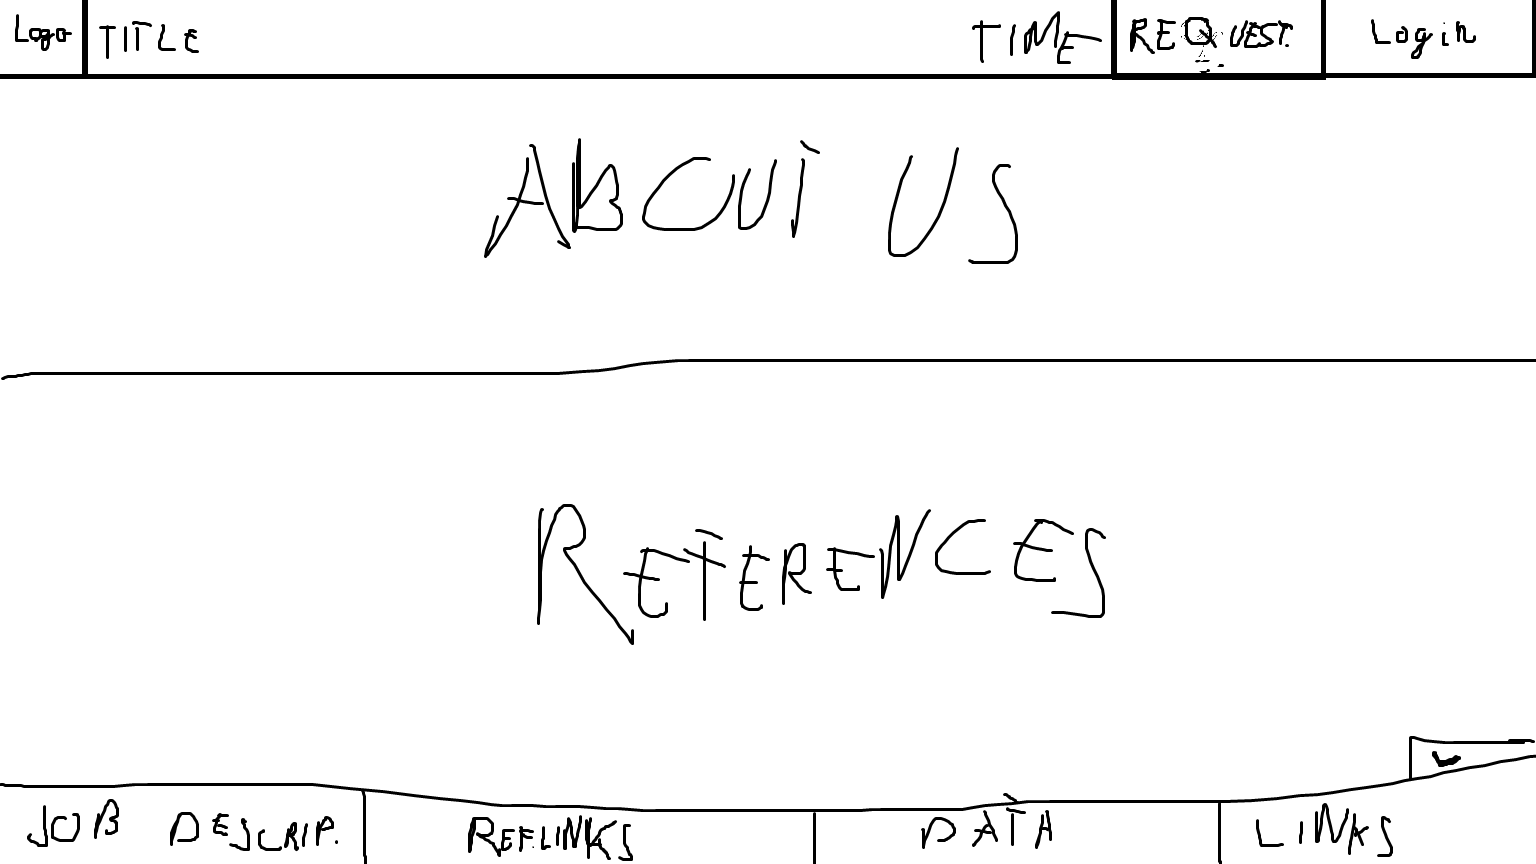 Logo
TITLE
TIME
REQUEST.
Login
ABOUT US
REFERENCES
JOB DESCRIP.
REF.LINKS
DATA
LINKS